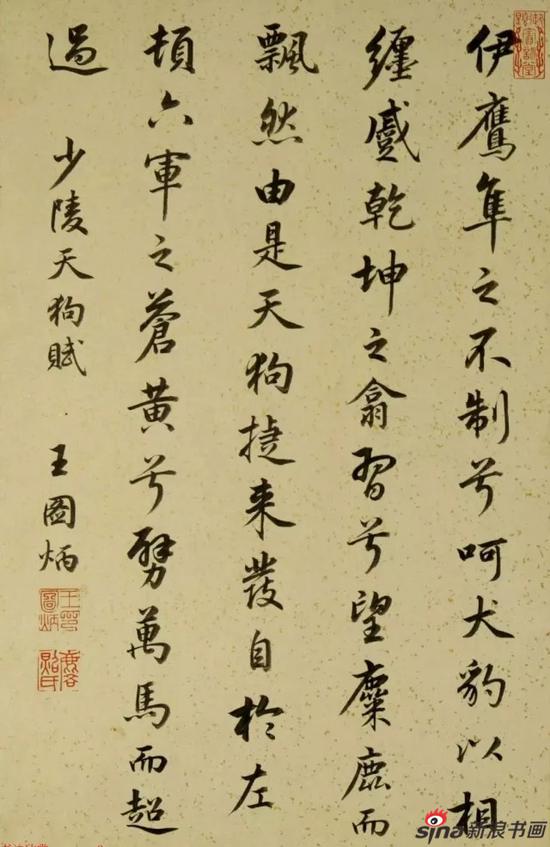 伊鷹隼之不制兮呵犬豹以相
纏蹙乾坤之翕習兮望麋鹿而
飄然由是天狗捷来發自於左
頓六軍之蒼黄兮劈萬馬而超
過
少陵天狗賦
王圖炳
王印圖炳
sina新浪书画